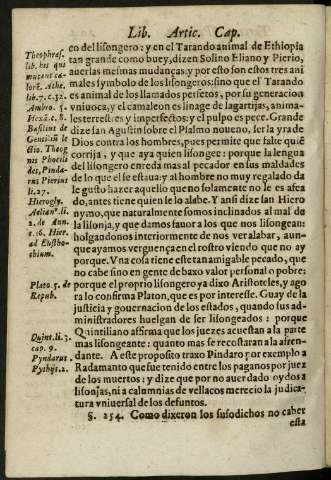 Lib. Artic. Cap.
co del lisongero: y en el Tarando animal de Ethiopia
tan grande como buey, dizen Solino Eliano y Pierio,
auer las mesmas mudanças: y por esto son estos tres ani
males symbolo de los lisongeros: sino que el Tarando
es animal de los llamados perfetos, por su generacion
vniuoca, y el camaleon es linage de lagartijas, anima-
les terrestres y imperfectos: y el pulpo es pece. Grande
dize san Agustin sobre el Psalmo noueno, ser la yra de
Dios contra los hombres, pues permite que falte quiē
corrija, y que aya quien lisongee: porque la lengua
del lisongero enreda mas al pecador en sus maldades
de lo que el se estaua: y al hombre no muy regalado da
le gusto hazer aquello que no solamente no le es afea
do, antes tiene quien se lo alabe. Y ansi dize san Hiero
nymo, que naturalmente somos inclinados al mal de
la lisonja, y que damos fauor a los que nos lisongean:
holgandonos interiormente de nos ver alabar, aun-
que ayamos verguença en el rostro viendo que no ay
porque. Vna cosa tiene este tan amigable pecado, que
no cabe sino en gente de baxo valor personal o pobre:
porque el proprio lisongero ya dixo Aristoteles, y ago
ra lo confirma Platon, que es por interesse. Guay de la
justicia y gouernacion de los estados, quando sus ad-
ministradores huelgan de ser lisongeados: porque
Quintiliano affirma que los juezes acuestan a la parte
mas lisongeante: quanto mas se recostaran a la afren-
dante. A este proposito traxo Pindaro por exemplo a
Radamanto que fue tenido entre los paganos por juez
de los muertos: y dize que por no auer dado oydos a
lisonjas, ni a calumnias de vellacos merecio la judica-
tura vniuersal de los defuntos.
§. 254. Como dixeron los susodichos no caber
esta
Theophras.
lib. his qui
mutant co-
lorē. Athe.
lib. 7. c. 32.
Ambro. 5.
Hexā. c. 8.
Basilius de
Gentiliū le
ctio. Theog
nis Phocili
det, Pinda-
rus Pierius
li. 27.
Hierogly.
Aelianᵒ. li.
2. de Ani.
c. 16. Hier.
ad Eustho-
chium.
Plato. 5. de
Repub.
Quint. li. 3.
cap. 9.
Pyndarus.
Pythij. 2.